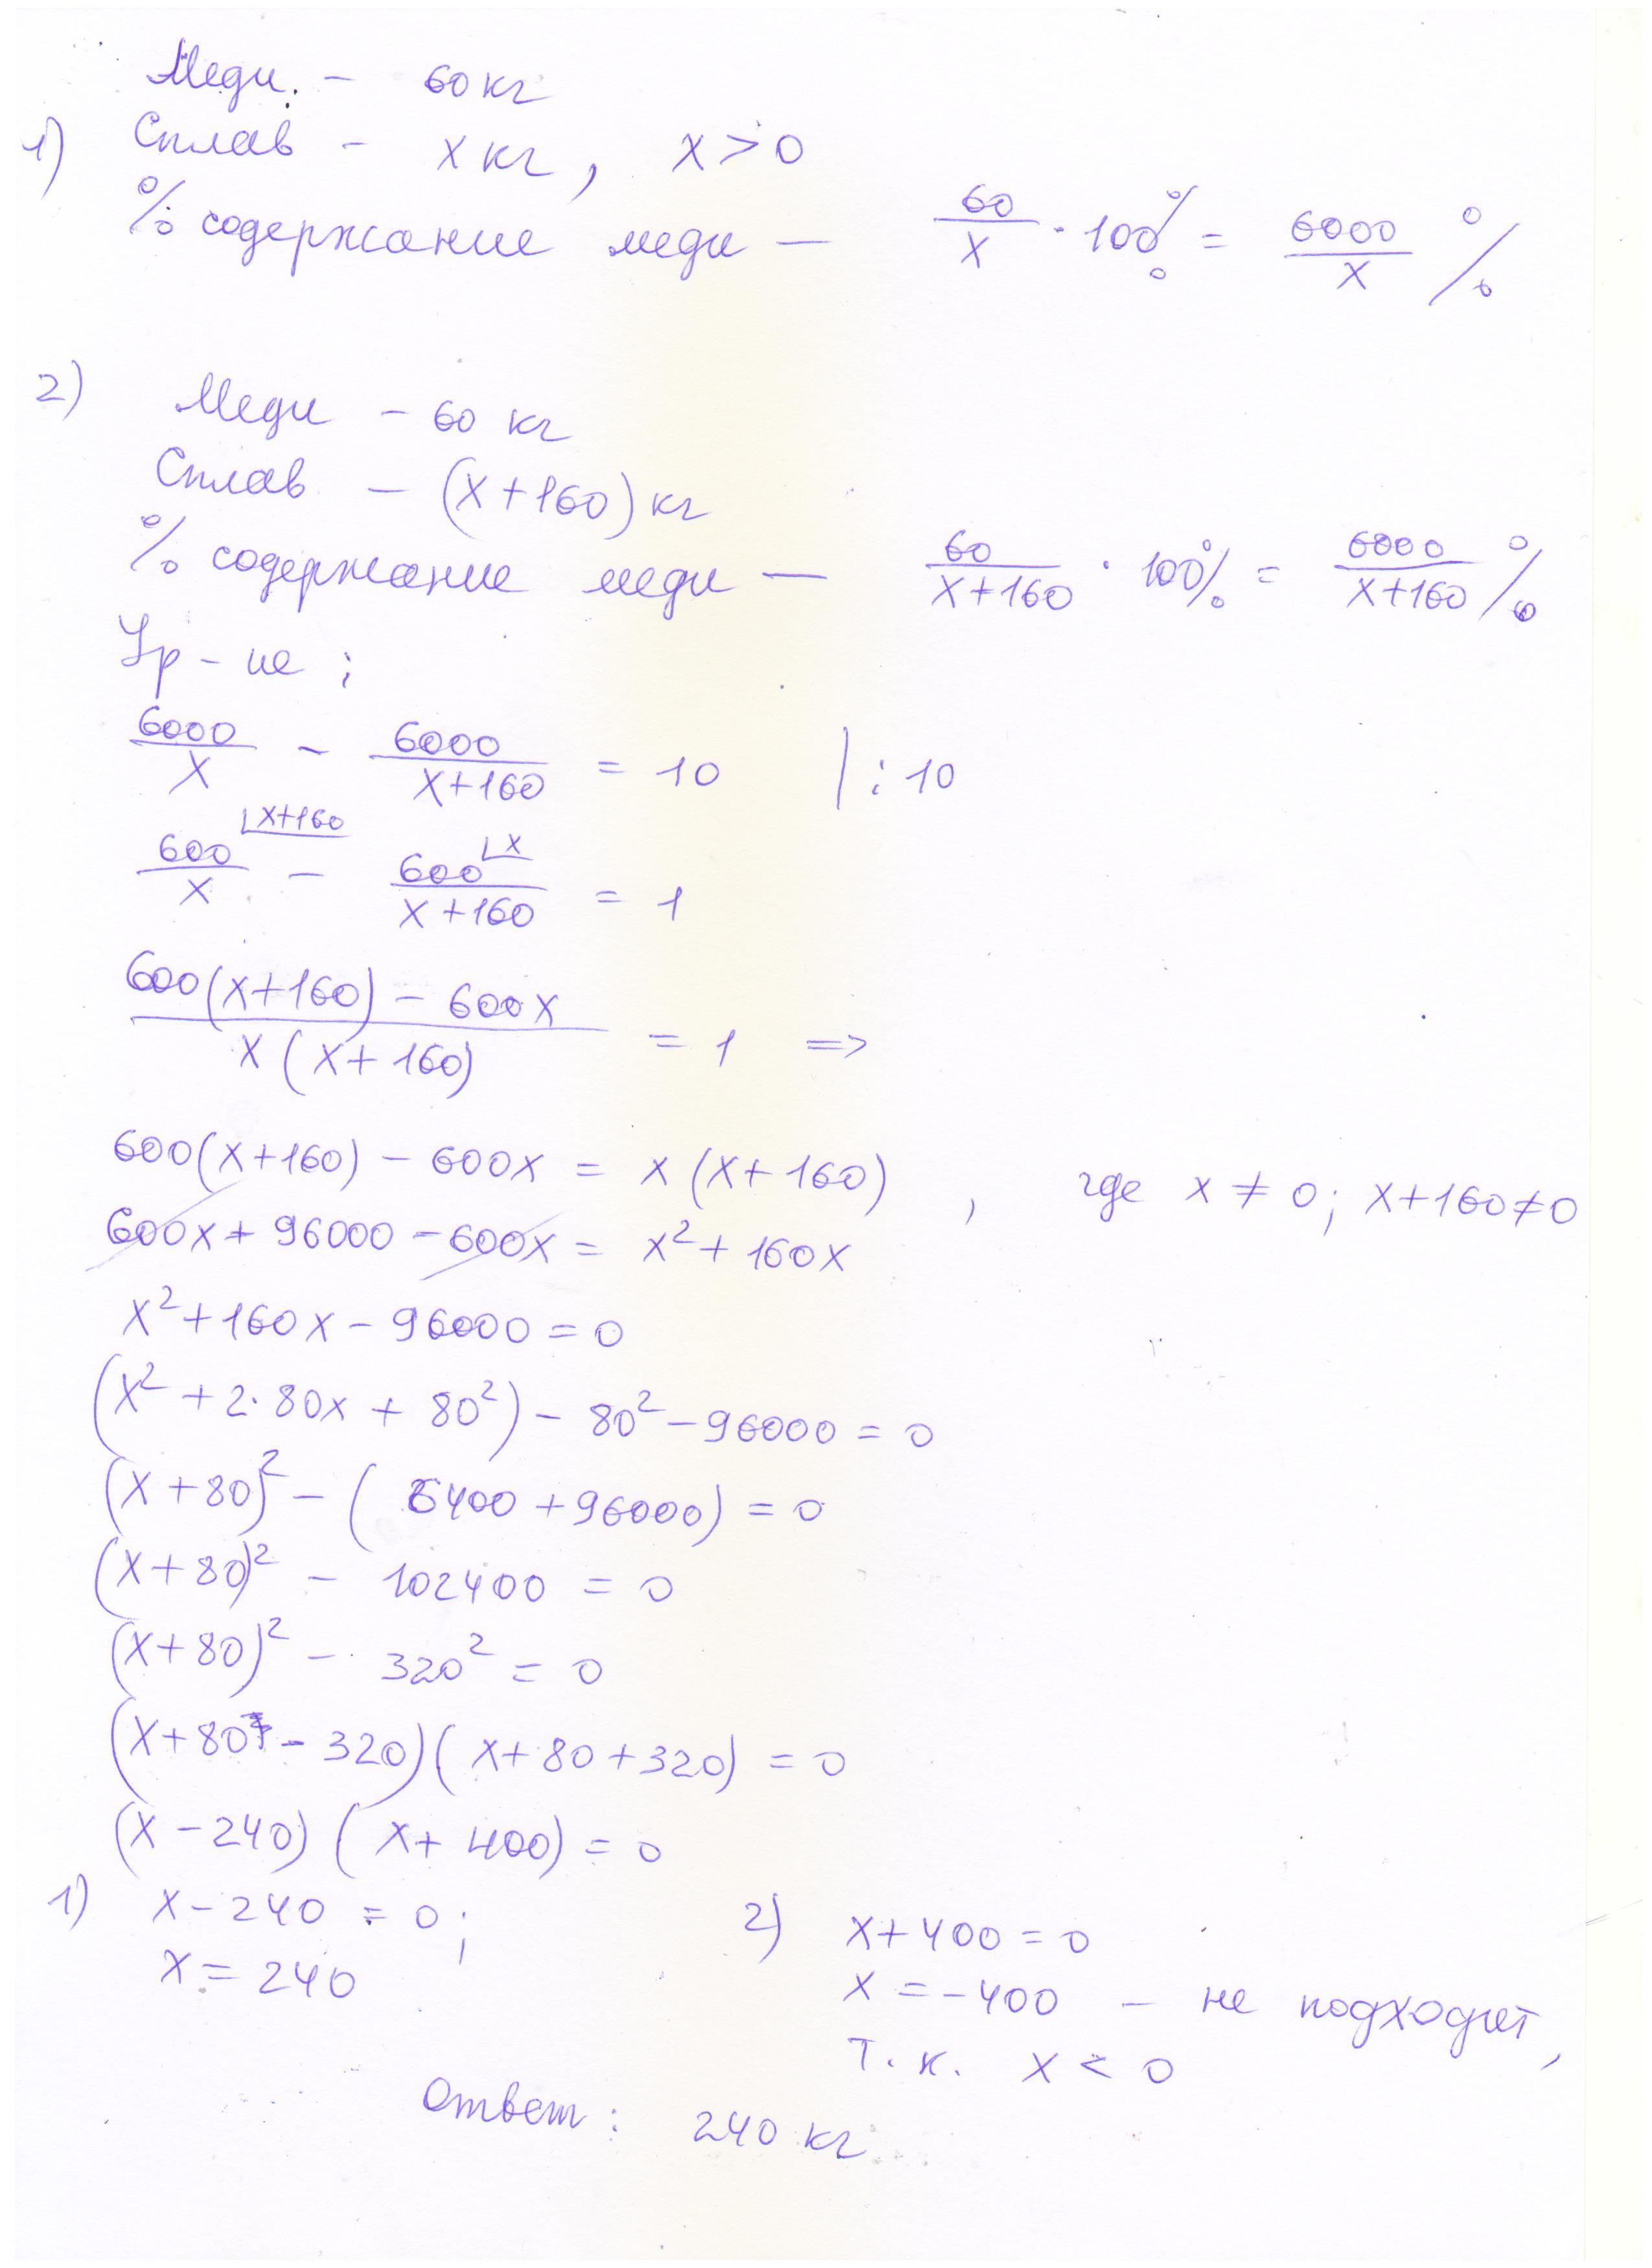 Меди. – 60 кг
1) Сплав – x кг, x > 0
% содержание меди — 60/x · 100% = 6000/x %
2) Меди – 60 кг
Сплав – (x+160) кг
% содержание меди — 60/(x+160) · 100% = 6000/(x+160) %
Ур-ие:
6000/x – 6000/(x+160) = 10 | : 10
600/x ⌊x+160 – 600/(x+160) ⌊x = 1
(600(x+160) – 600x)/(x(x+160)) = 1 =>
600(x+160) – 600x = x(x+160) , где x ≠ 0; x+160≠0
600x + 96000 – 600x = x² + 160x
x² + 160x – 96000 = 0
(x² + 2·80x + 80²) – 80² – 96000 = 0
(x + 80)² – (6400 + 96000) = 0
(x + 80)² – 102400 = 0
(x + 80)² – 320² = 0
(x + 80 – 320)(x + 80 + 320) = 0
(x – 240)(x + 400) = 0
1) x – 240 = 0; 2) x + 400 = 0
x = 240 x = –400 – не подходит,
т.к. x < 0
Ответ: 240 кг